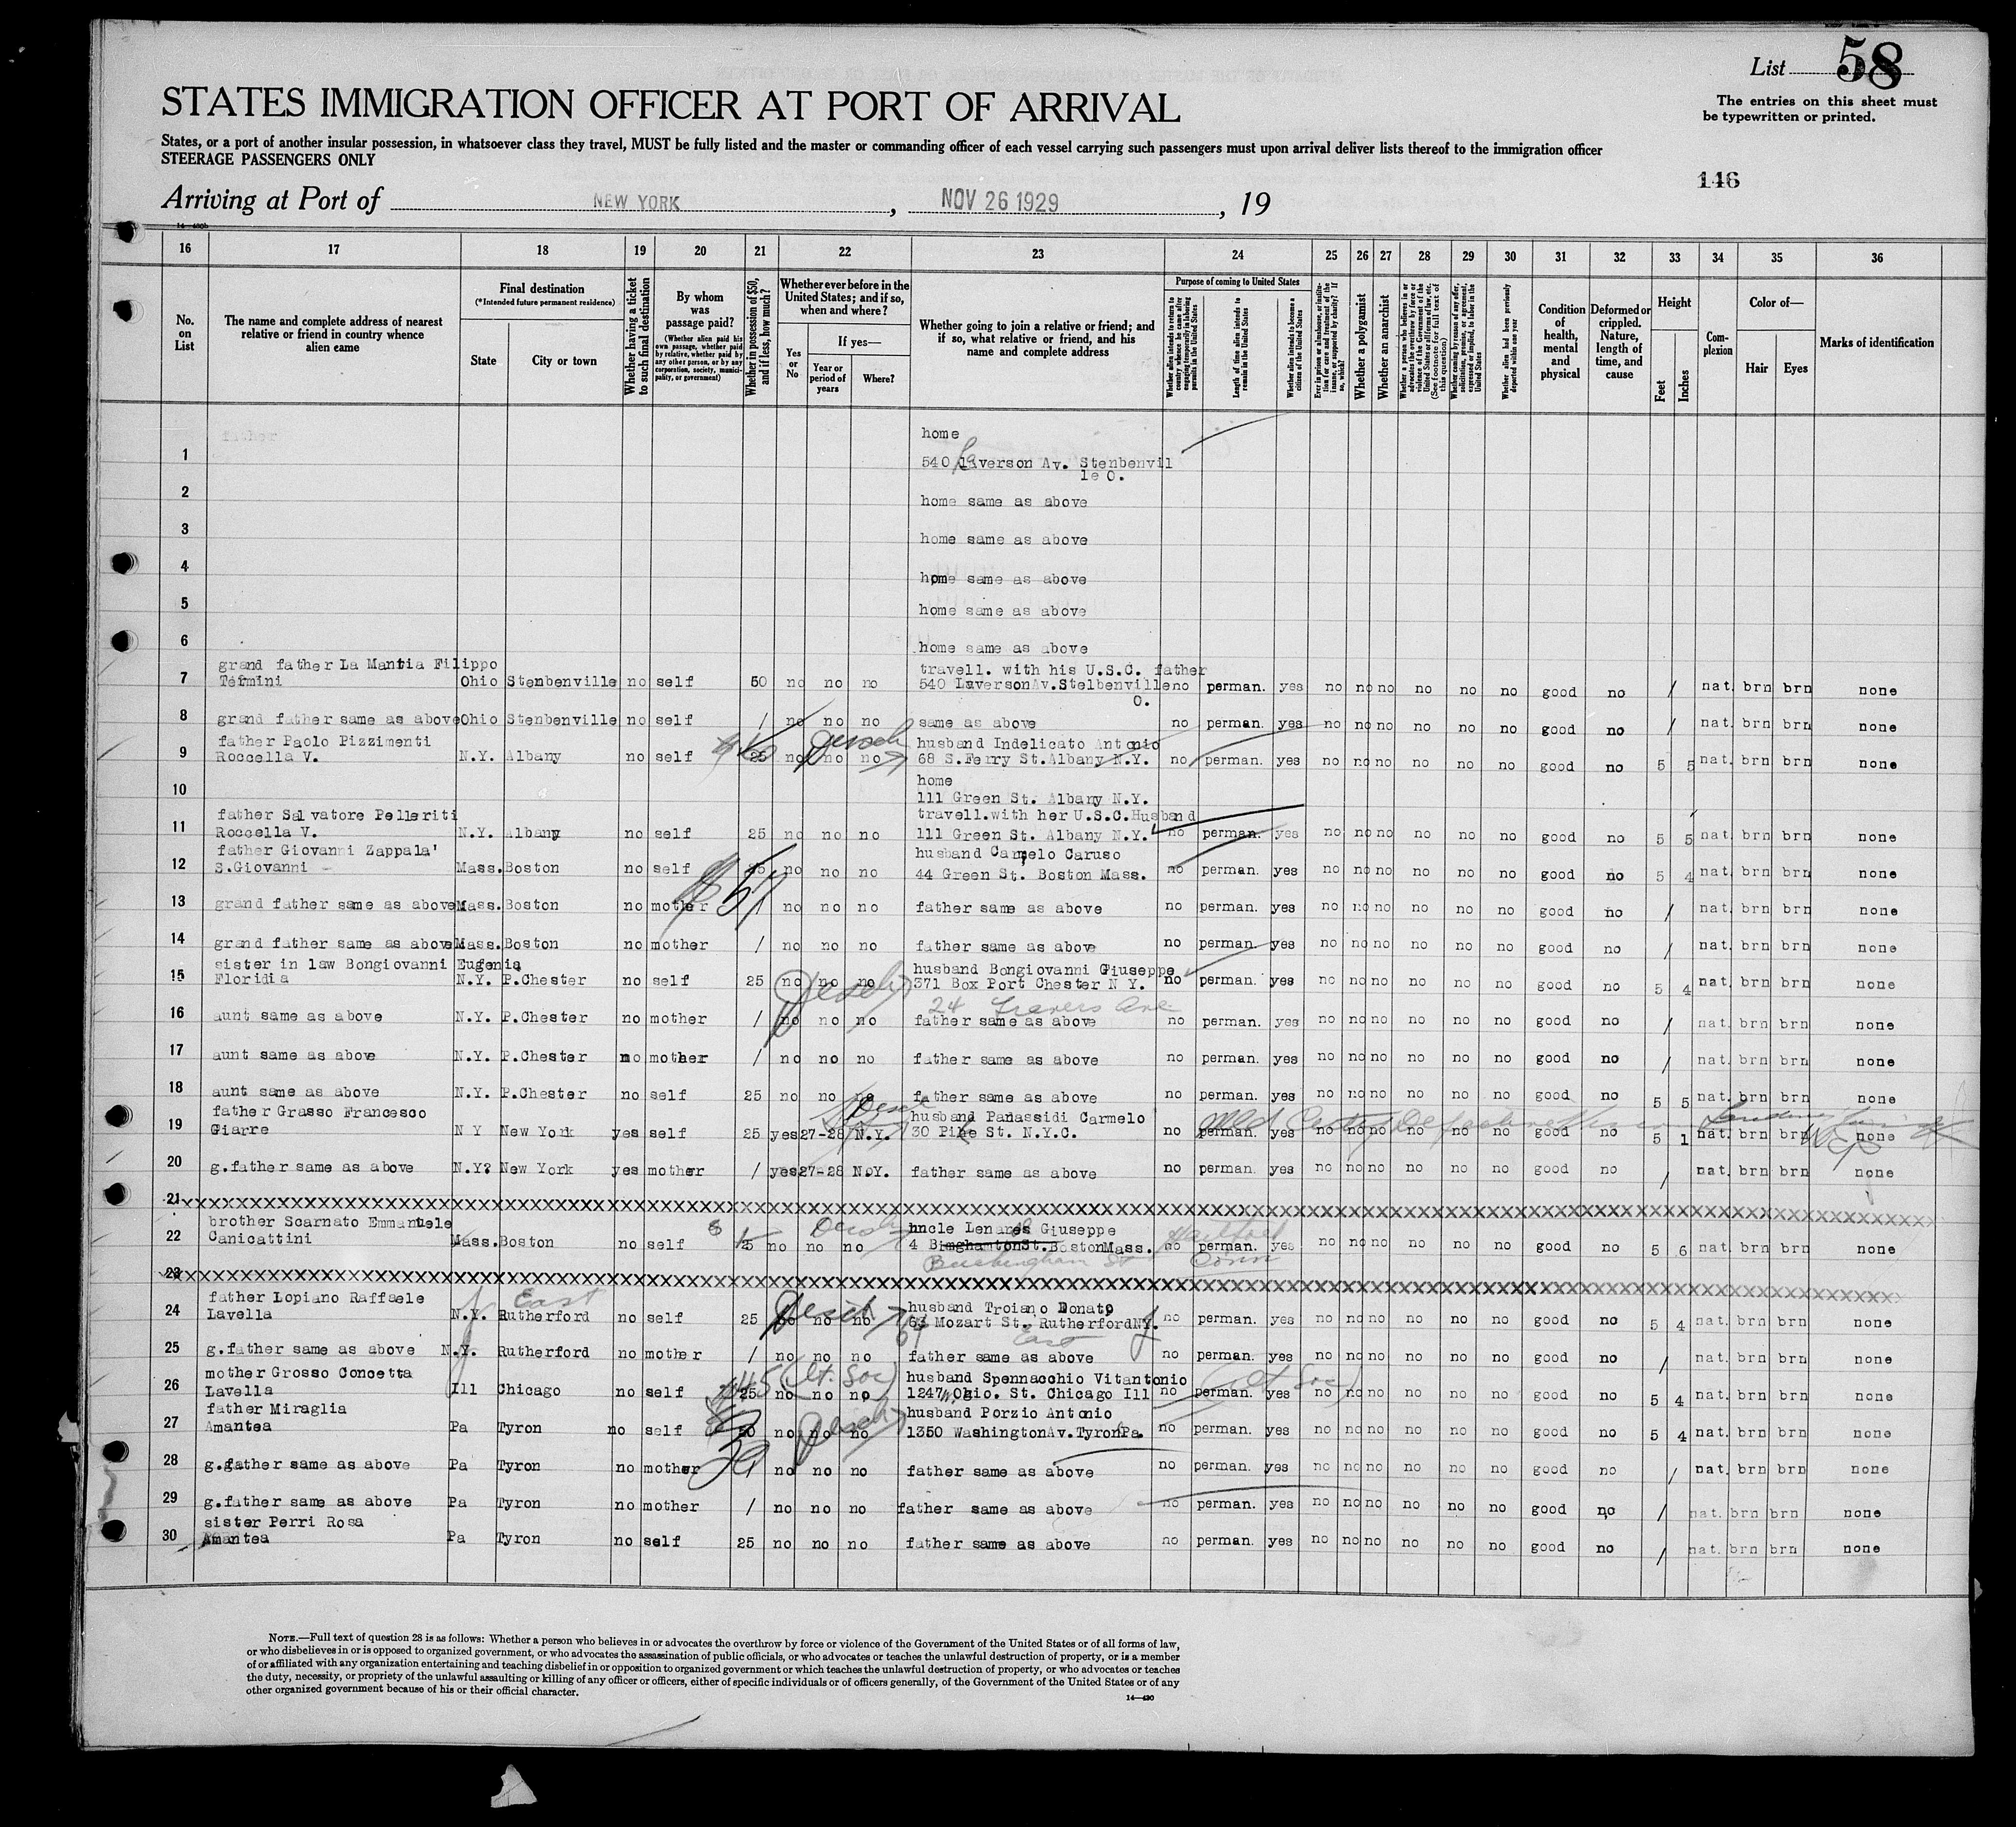 List 58
The entries on this sheet must
be typewritten or printed.
STATES IMMIGRATION OFFICER AT PORT OF ARRIVAL
States, or a port of another insular possession, in whatsoever class they travel, MUST be fully listed and the master or commanding officer of each vessel carrying such passengers must upon arrival deliver lists thereof to the immigration officer
STEERAGE PASSENGERS ONLY
146
Arriving at Port of NEW YORK, NOV 26 1929, 19
16 17 18 19 20 21 22 23 24 25 26 27 28 29 30 31 32 33 34 35 36
No. on List
The name and complete address of nearest relative or friend in country whence alien came
Final destination
(*Intended future permanent residence)
State
City or town
Whether having a ticket to such final destination
By whom was passage paid?
(Whether alien paid his own passage, whether paid by relative, whether paid by any other person, or by any corporation, society, municipality, or government)
Whether in possession of $50, and if less, how much?
Whether ever before in the United States; and if so, when and where?
Yes or No
If yes—
Year or period of years
Where?
Whether going to join a relative or friend; and if so, what relative or friend, and his name and complete address
Purpose of coming to United States
Length of time alien intends to remain in the United States
Whether alien intends to become a citizen of the United States
Whether a polygamist
Whether an anarchist
Whether alien had been previously deported within one year
Condition of health, mental and physical
Deformed or crippled. Nature, length of time, and cause
Height
Feet
Inches
Complexion
Color of—
Hair
Eyes
Marks of identification
home
1 540 Laverson Av. Stenbenvil
le O.
2 home same as above
3 home same as above
4 home same as above
5 home same as above
6 home same as above
grand father La Mantia Filippo travell. with his U.S.C. father
7 Termini Ohio Stenbenville no self 50 no no no 540 LaversonAv.Stelbenville no perman. yes no no no no no no good no / nat. brn brn none
O.
8 grand father same as above Ohio Stenbenville no self / no no no same as above no perman. yes no no no no no no good no / nat. brn brn none
father Paolo Pizzimenti husband Indelicato Antonio
9 Roccella V. N.Y. Albany no self 25 no no no 68 S.Ferry St.Albany N.Y. no perman. yes no no no no no no good no 5 5 nat. brn brn none
home
10 111 Green St. Albany N.Y.
father Salvatore Pelleriti travell.with her U.S.C.Husband
11 Roccella V. N.Y. Albany no self 25 no no no 111 Green St. Albany N.Y. no perman. yes no no no no no no good no 5 5 nat. brn brn none
father Giovanni Zappala' husband Carmelo Caruso
12 S.Giovanni - Mass. Boston no self 25 no no no 44 Green St. Boston Mass. no perman. yes no no no no no no good no 5 4 nat. brn brn none
$ 57
13 grand father same as above Mass. Boston no mother / no no no father same as above no perman. yes no no no no no no good no / nat. brn brn none
14 grand father same as above Mass. Boston no mother / no no no father same as above no perman. yes no no no no no no good no / nat. brn brn none
sister in law Bongiovanni Eugenia husband Bongiovanni Giuseppe
15 Floridia N.Y. P.Chester no self 25 no no no 371 Box Port Chester N Y. no perman. yes no no no no no no good no 5 4 nat. brn brn none
24 Travers Ave
16 aunt same as above N.Y. P.Chester no mother / no no no father same as above no perman. yes no no no no no no good no / nat. brn brn none
17 aunt same as above N.Y. P.Chester no mother / no no no father same as above no perman. yes no no no no no no good no / nat. brn brn none
18 aunt same as above N.Y. P.Chester no self 25 no no no father same as above no perman. yes no no no no no no good no 5 5 nat. brn brn none
father Grasso Francesco husband Panassidi Carmelo
19 Giarre N Y New York yes self 25 yes 27-28 N.Y. 30 Pike St. N.Y.C. no perman. yes no no no no no no good no 5 1 nat. brn brn none
20 g.father same as above N.Y? New York yes mother / yes 27-28 N.Y. father same as above no perman. yes no no no no no no good no / nat. brn brn none
21
brother Scarnato Emmanuele uncle Lenares Giuseppe
22 Canicattini Mass. Boston no self 25 no no no 4 BinghamtonSt.BostonMass. no perman. yes no no no no no no good no 5 6 nat. brn brn none
Buckingham St Hartford Conn
23
father Lopiano Raffaele East husband Troiano Donato
24 Lavella N.Y. Rutherford no self 25 no no no 63 Mozart St. RutherfordNY. no perman. yes no no no no no no good no 5 4 nat. brn brn none
64 East
25 g.father same as above N.Y. Rutherford no mother / no no no father same as above no perman. yes no no no no no no good no / nat. brn brn none
mother Grosso Concetta husband Spennacchio Vitantonio
26 Lavella Ill Chicago no self 25 no no no 1247 W. Ohio. St. Chicago Ill no perman. yes no no no no no no good no 5 4 nat. brn brn none
father Miraglia husband Porzio Antonio
27 Amantea Pa Tyron no self 50 no no no 1350 WashingtonAv.Tyron Pa. no perman. yes no no no no no no good no 5 4 nat. brn brn none
28 g.gfather same as above Pa Tyron no mother no no no father same as above no perman. yes no no no no no no good no / nat. brn brn none
29 g.father same as above Pa Tyron no mother / no no no father same as above no perman. yes no no no no no no good no / nat. brn brn none
sister Perri Rosa
30 Amantea Pa Tyron no self 25 no no no father same as above no perman. yes no no no no no no good no / nat. brn brn none
NOTE.—Full text of question 28 is as follows: Whether a person who believes in or advocates the overthrow by force or violence of the Government of the United States or of all forms of law,
or who disbelieves in or is opposed to organized government, or who advocates the assassination of public officials, or who advocates or teaches the unlawful destruction of property, or is a member
of or affiliated with any organization entertaining and teaching disbelief in or opposition to organized government or which teaches the unlawful destruction of property, or who advocates or teaches
the duty, necessity, or propriety of the unlawful assaulting or killing of any officer or officers, either of specific individuals or of officers generally, of the Government of the United States or of any
other organized government because of his or their official character.
14—430